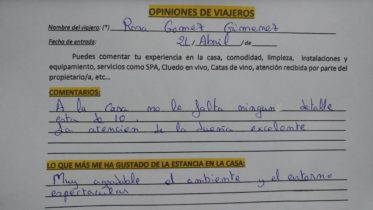 OPINIONES DE VIAJEROS
Nombre del viajero: (*) Rosa Gomez Gimenez
Fecha de entrada: 21 Abril / de
Puedes comentar tu experiencia en la casa, comodidad, limpieza, instalaciones y
equipamiento, servicios como SPA, Cluedo en vivo, Catas de vino, atención recibida por parte del
propietario/a, etc...
COMENTARIOS:
A la casa no le falta ningun detalle
esta de 10.
La atencion de la dueña excelente
LO QUE MÁS ME HA GUSTADO DE LA ESTANCIA EN LA CASA:
Muy agradable el ambiente y el entorno
espectacular